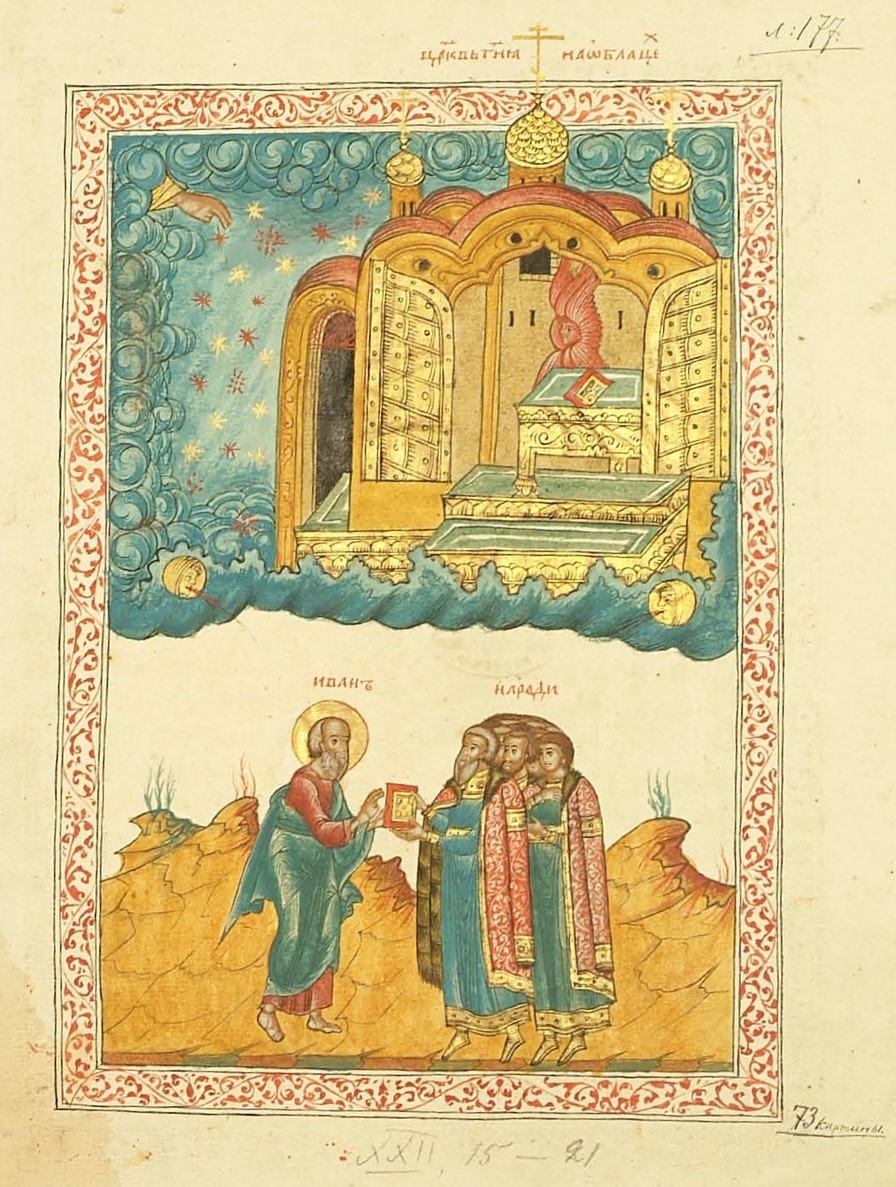 л: 177.
црк҃вь г҃ня на ѡблацех
иванъ
народи
73 картины.
XXII, 15 — 21